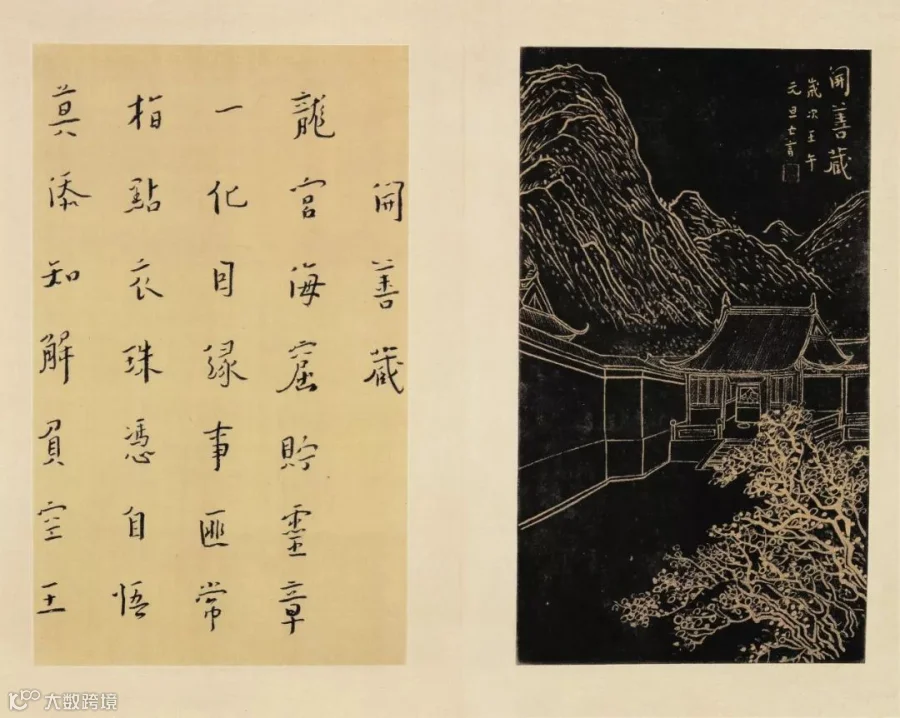 開善藏
歲次壬午
元旦亡言
開善藏
龍宮海窟貯靈章
一化因緣事匪常
指點衣珠憑自悟
莫添知解負空王
大数跨境